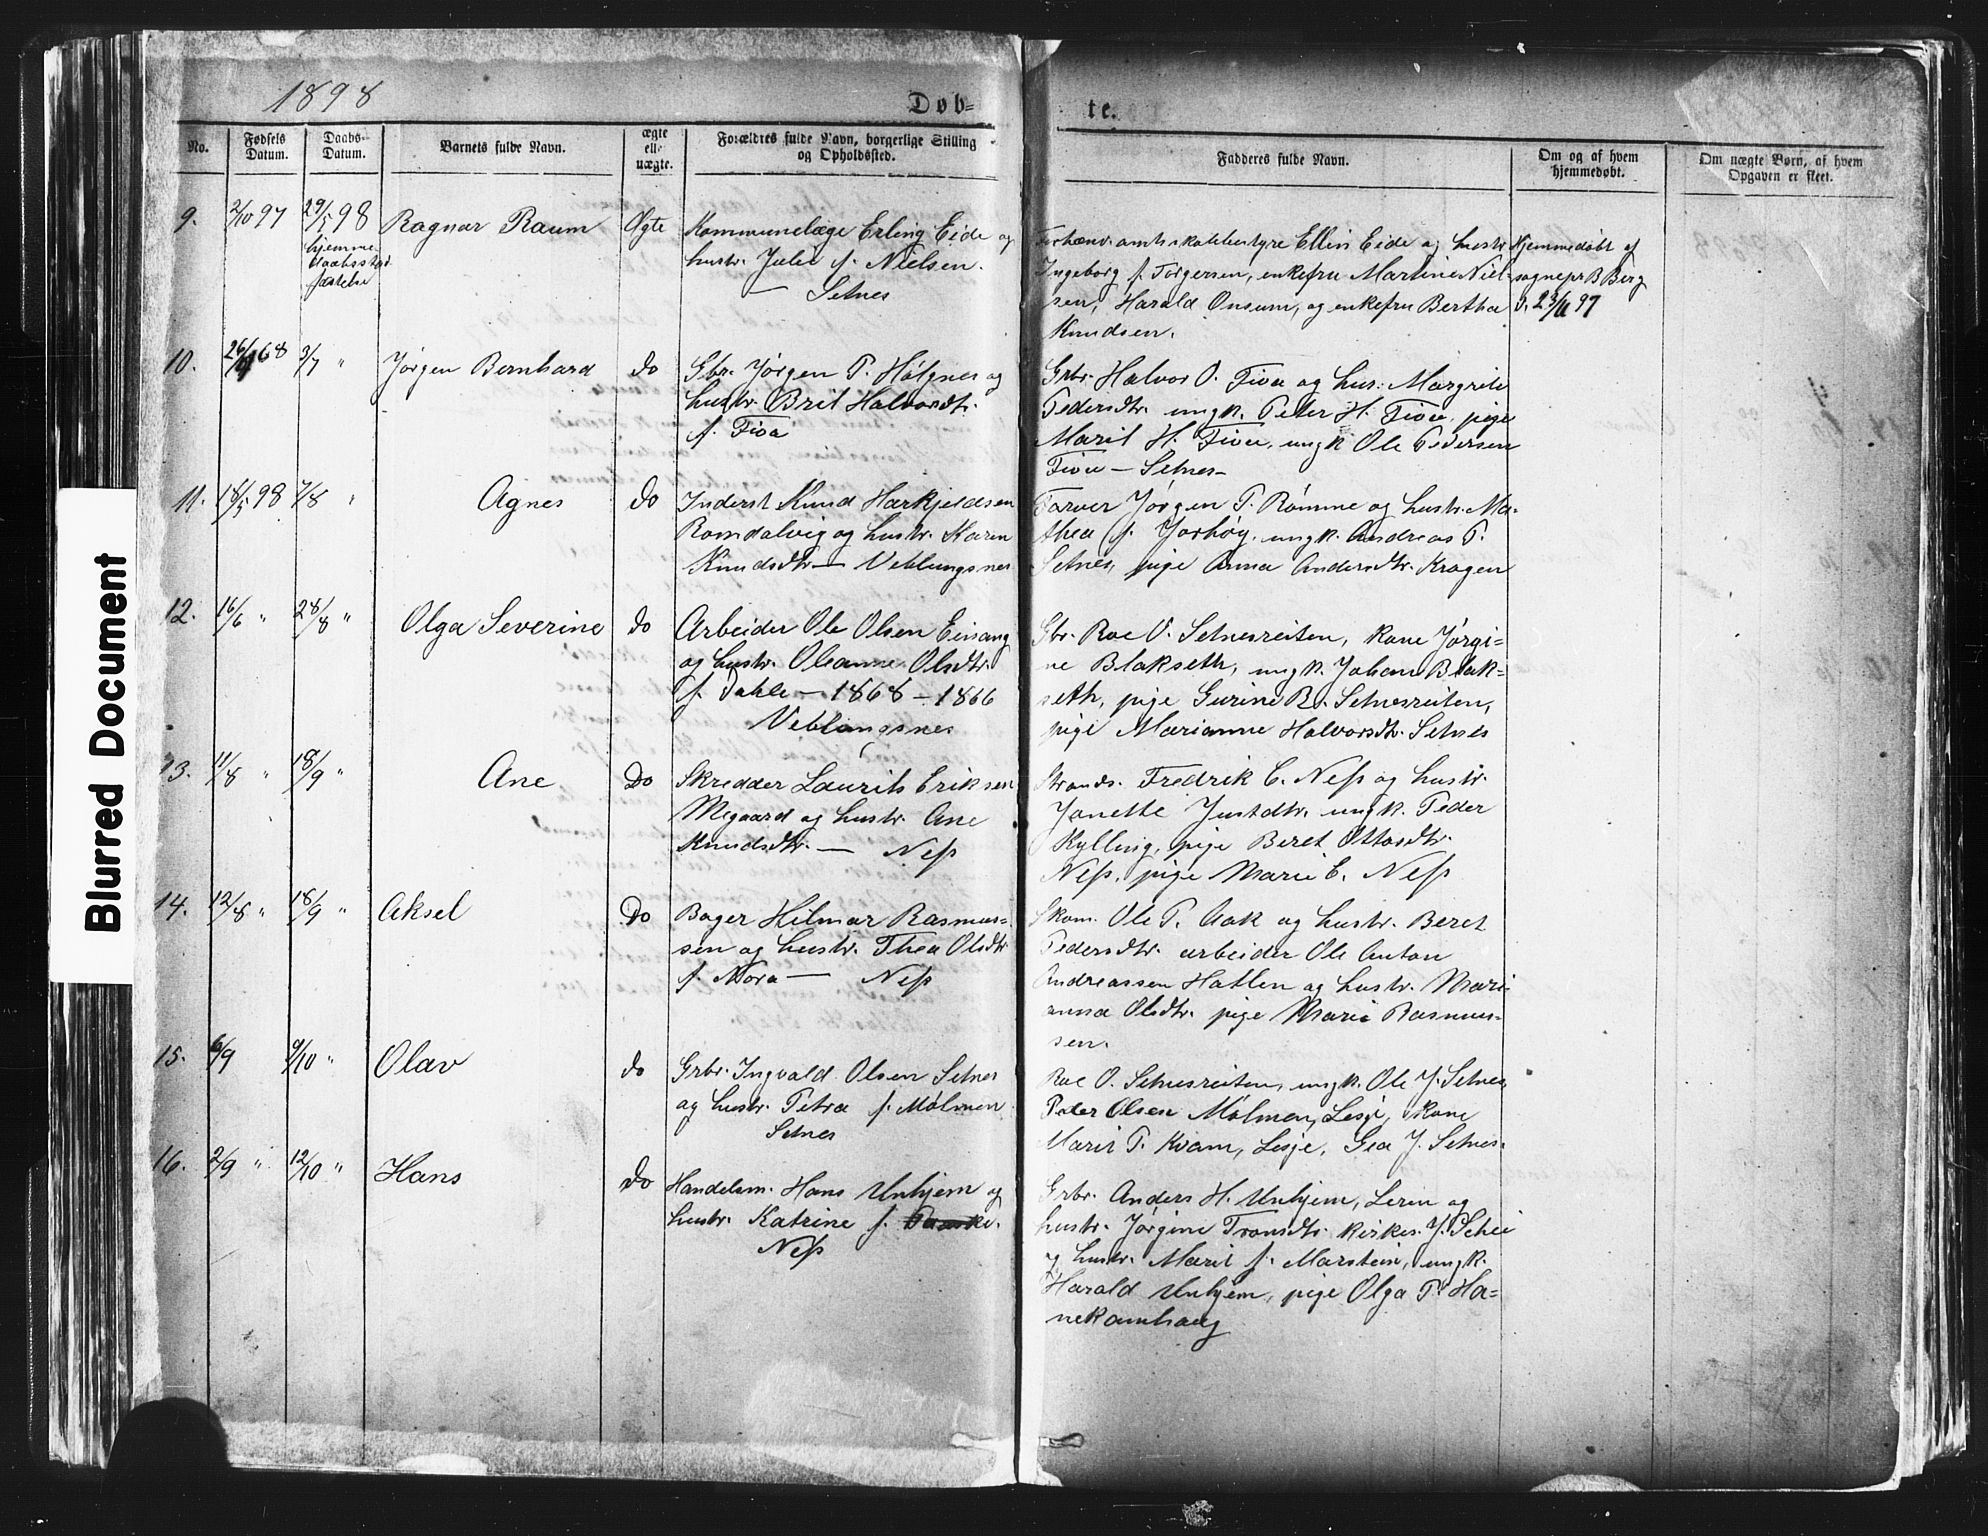 Blurred Document
1898
Døb=
te.
No.
Fødsels Datum.
Daabs- Datum.
Barnets fulde Navn.
ægte eller uægte.
Forældres fulde Navn, borgerlige Stilling og Opholdssted.
Fadderes fulde Navn.
Om og af hvem hjemmedøbt.
Om uægte Børn, af hvem Opgaven er skeet.
9.
2/10 97
29/5 98
hjemme
Ragnar Raum
Ægte
Kommunelæge Erling Eide og
hustr. Julie f. Nielsen.
— Setnes
amtsskolebestyre Ellin Eide og hustr
Ingeborg f. Torgersen, enkefru Martine Niel-
sen, Harald Onsum, og enkefru Bertha
Knudsen.
Hjemmedøbt af
sognepr B Berg
10.
3/7 "
Jørgen Bernhard
do
Gbr. Jørgen P. Hølgnes og
hustr. Brit Halvorsdtr.
f. Fiva
Grbr. Halvor O. Fiva og hus: Margrete
Pedersdtr. ungk. Peter H. Fiva, pige
Marit H. Fiva, ungk Ole Pedersen
Fiva — Setnes –
11.
18/5 98
7/8 "
Agnes
do
Inderst Knud Harkjeldsen
Romdalvig og hustr. Karen
Knudsdtr — Veblungsnes
Farver Jørgen P. Rømme og hustr. Ma-
thea f. Jorhøy, ungk. Andreas P.
Setnes, pige Anna Andersdtr. Kragen
12.
16/6 "
28/8 "
Olga Severine
do
Arbeider Ole Olsen Einang
og hustr. Oleanne Olsdtr.
f. Dahle — 1868 — 1866
Veblungsnes
Gbr. Roe O. Setnesreiten, kone Jørgi=
ne Blakseth, ungk. Johan Blak=
seth, pige Gurine R. Setnesreiten,
pige Marianne Halvorsdtr. Setnes
13.
11/8 "
18/9 "
Ane
Do
Skredder Laurits Eriksen
Megaard og hustr. Ane
Knudsdtr. — Ness
Strands. Fredrik E. Ness og hustr.
Janette Justdtr. ungk. Peder
Kylling, pige Beret Ottosdtr.
Ness, pige Marie E. Ness
14.
12/8 "
18/9 "
Aksel
Do
Bager Hilmar Rasmus=
sen og hustr. Thea Olsdtr
f. Mora — Ness
Skom. Ole P. Aak og hustr. Beret
Pedersdtr. arbeider Ole Anton
Andreassen Hatlen og hustr. Mari-
anna Olsdtr. pige Marie Rasmus-
sen.
15.
6/9
9/10 "
Olav
do
Grbr. Ingvald Olsen Setnes
og hustr. Petra f. Mølmen
Setnes
Roe O. Setnesreiten, ungk. Ole J. Setnes,
Peder Olsen Mølmen, Lesje, kone
Marit P. Kvam, Lesje, Gea J. Setnes.
16.
2/9 "
12/10 "
Hans
Do
Handelsm. Hans Unhjem og
hustr. Katrine f.
Ness
Grbr. Anders H. Unhjem, Leren og
hustr. Jørgine Tronsdtr. kirkes. J. Setnes
og hustr. Marit f. Marstein, ungk.
Harald Unhjem, pige Olga P. Ha=
nekamhaug